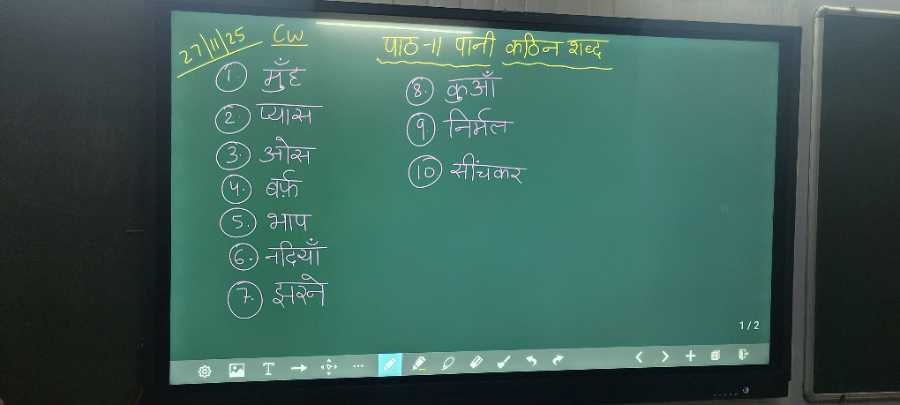 27/11/25 CW
पाठ-11 पानी कठिन शब्द
1. मुँह
2. प्यास
3. ओस
4. बर्फ़
5. भाप
6. नदियाँ
7. झरने
8. कुआँ
9. निर्मल
10 सींचकर
1/2